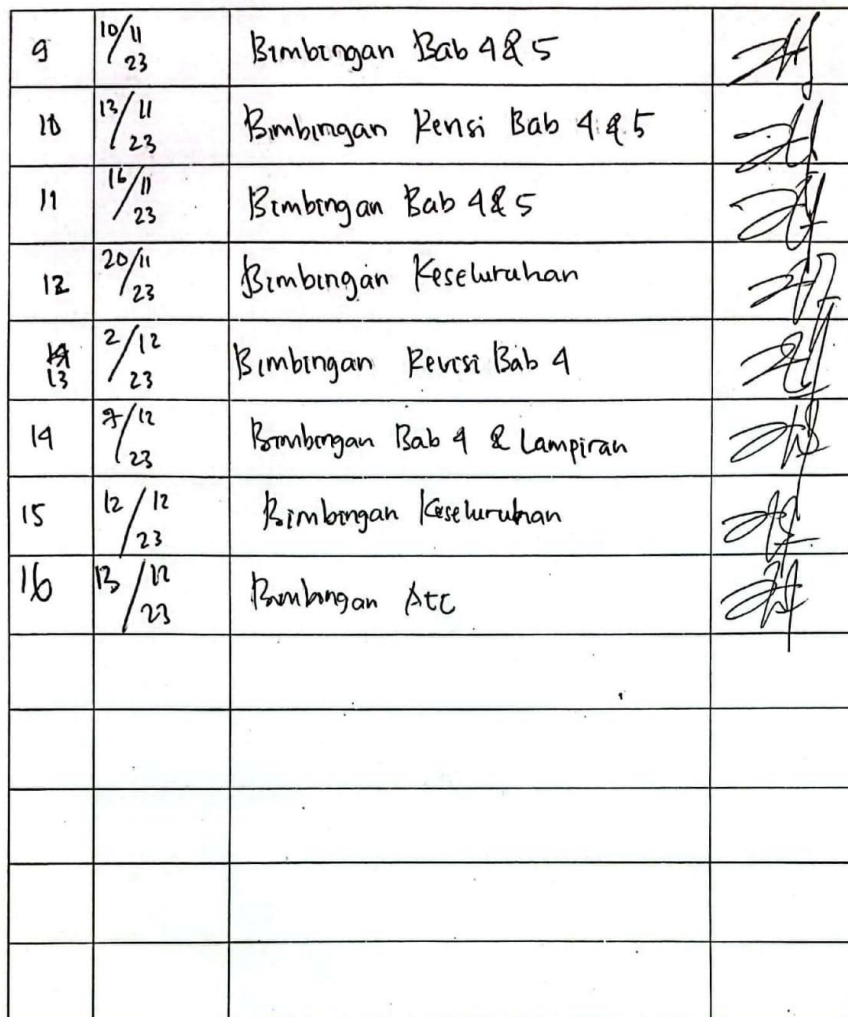 9 10/11 23 Bimbingan Bab 4 & 5
10 13/11 23 Bimbingan Revisi Bab 4 & 5
11 16/11 23 Bimbingan Bab 4 & 5
12 20/11 23 Bimbingan Keseluruhan
13 2/12 23 Bimbingan Revisi Bab 4
14 7/12 23 Bimbingan Bab 4 & Lampiran
15 12/12 23 Bimbingan Keseluruhan
16 13/12 23 Bimbingan Acc